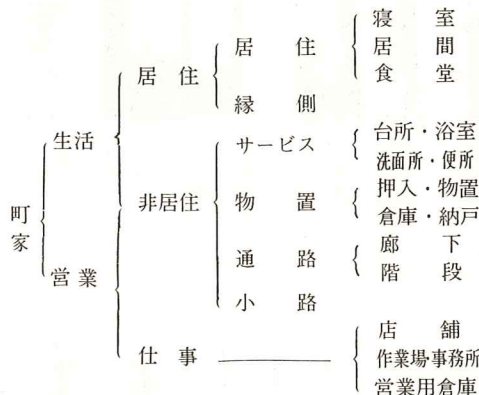 町家
生活
営業
居住
非居住
仕事
居住
縁側
サービス
物置
通路
小路
寝室
居間
食堂
台所・浴室
洗面所・便所
押入・物置
倉庫・納戸
廊下
階段
店舗
作業場・事務所
営業用倉庫